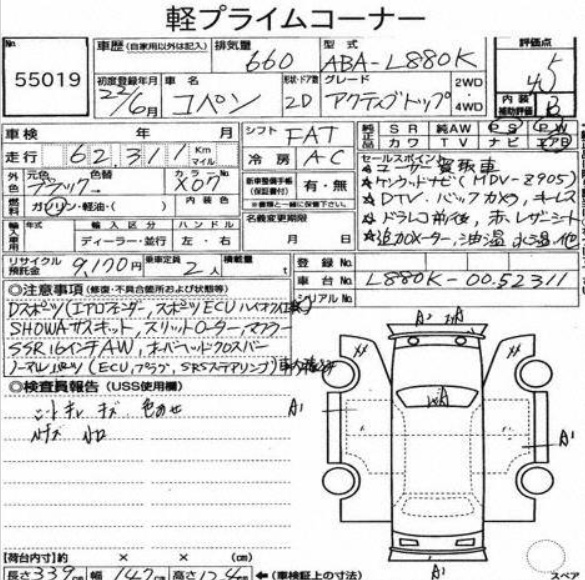 軽プライムコーナー
No. 55019
車歴 (自家用以外は記入)
排気量 660
型式 ABA-L880K
評価点 4.5
初度登録年月 22/6月
車名 コペン
形状・ドア数 2D
グレード アクティブトップ
2WD・4WD
内装補助評価 B
車検 年 月
走行 62,311 Km マイル
シフト FAT
冷房 AC
純正品 SR 純AW PS PW
カワ TV ナビ エアB
外色 元色 ブラック→ 色替
カラーNo. X07
燃料 ガソリン・軽油・( )
内装色
新車整備手帳(保証書付) 有・無
※書類と一緒に保管下さい。
セールスポイント
★ユーザー買取車
★ケンウッドナビ(MDV-Z905)
★DTV、バックカメラ、キーレス
★ドラレコ前後、赤レザーシート
★追加メーター、油温 水温 他
輸入車用 年式 輸入区分 ハンドル
ディーラー・並行 左・右
名義変更期限
月 日
リサイクル預託金 9,170円
乗車定員 2人
積載量 t
登録No.
車台No. L880K-0052311
シリアルNo.
◎注意事項 (修復・不具合箇所および状態等)
Dスポーツ(エアロフェンダー、スポーツECU
SHOWAサスキット、スリットローター、マフラー
SSR16インチAW、オーバーヘッドクロスバー
ノーマルパーツ(ECU,プラグ,SRSステアリング)
◎検査員報告 (USS使用欄)
シートキレ キズ 色あせ
A' A' A' A' A'
W A
【荷台内寸】約 × × (cm)
長さ339cm 幅147cm 高さ124cm ←(車検証上の寸法)
スペア